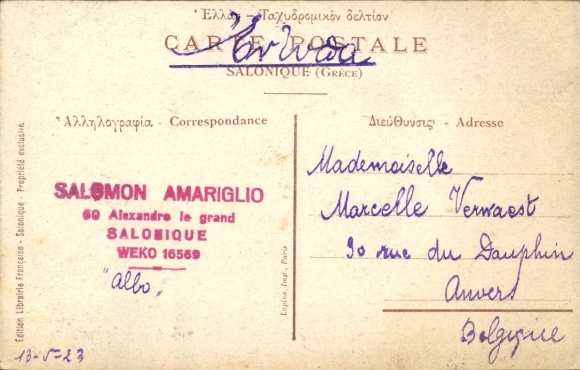 Ἑλλὰς – Ταχυδρομικὸν δελτίον
CARTE POSTALE
SALONIQUE (GRÈCE)
Ἀλληλογραφία - Correspondance
Διεύθυνσις - Adresse
SALOMON AMARIGLIO
60 Alexandre le grand
SALONIQUE
WEKO 16569
"Albo"
13-5-23
Mademoiselle
Marcelle Verwaest
90 rue du Dauphin
Anvers
Belgique
Edition Librairie Française - Salonique - Propriété exclusive
Lapina, Impr., Paris